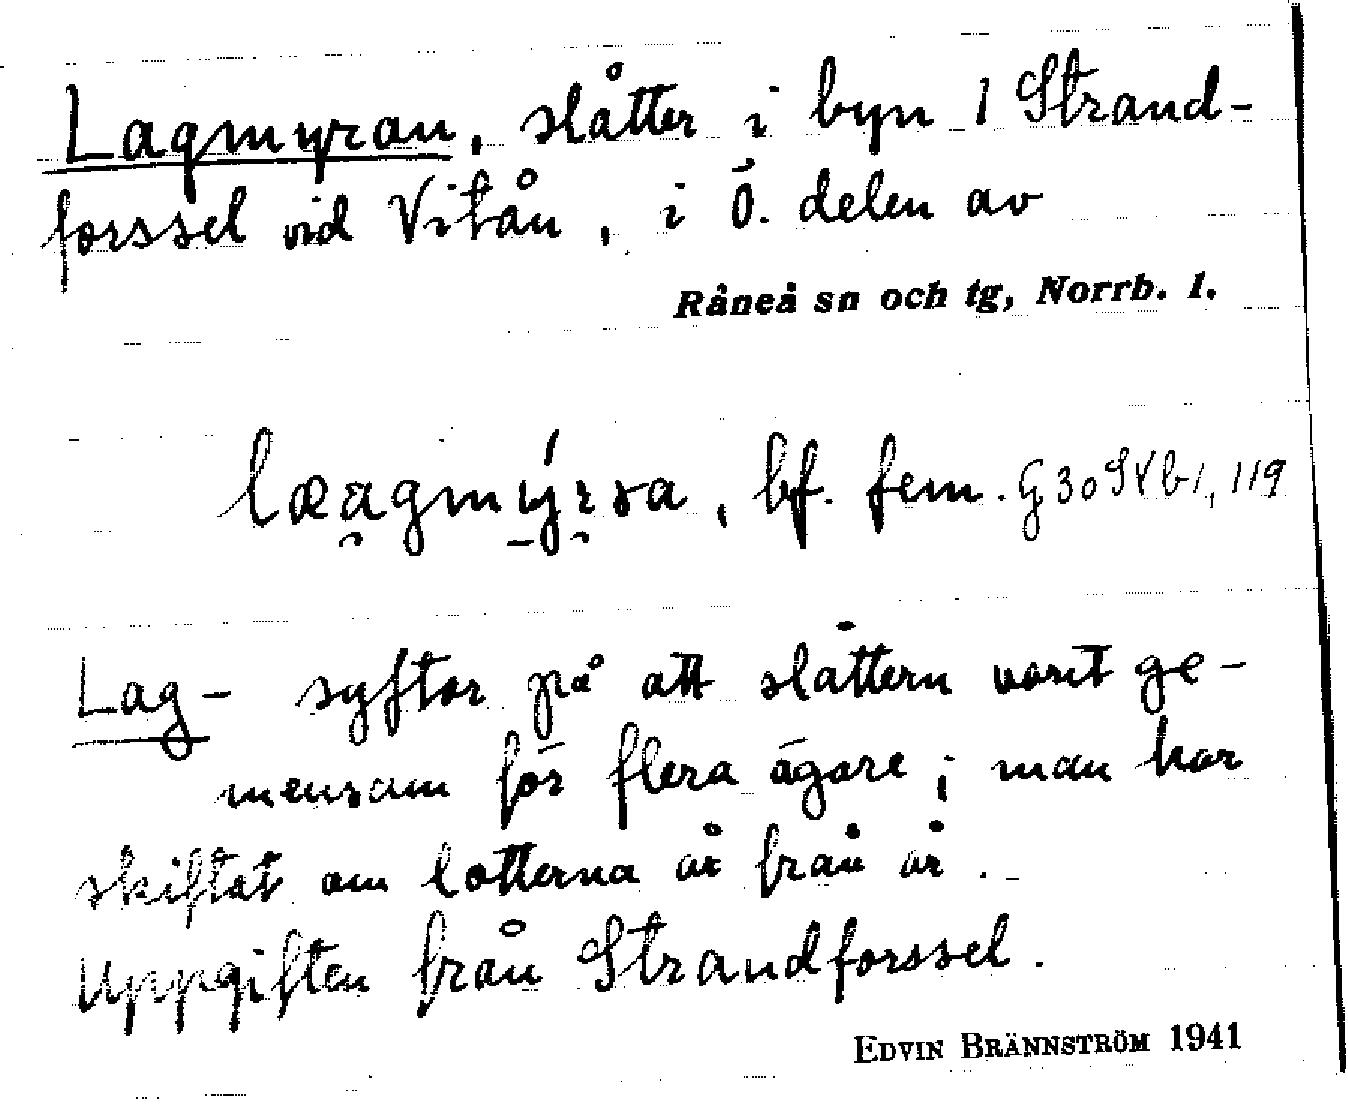 Lagmyran, slåtter i byn 1 Strand-
forssel vid Vitån, i ö. delen av
Råneå sn och tg, Norrb. l.
bf. fem. G 30 S4 b1, 119
Lag- syftar på att slåttern varit ge-
mensam för flera ägare; man har
skiftat om lotterna år från år.
Uppgiften från Strandforssel.
EDVIN BRÄNNSTRÖM 1941